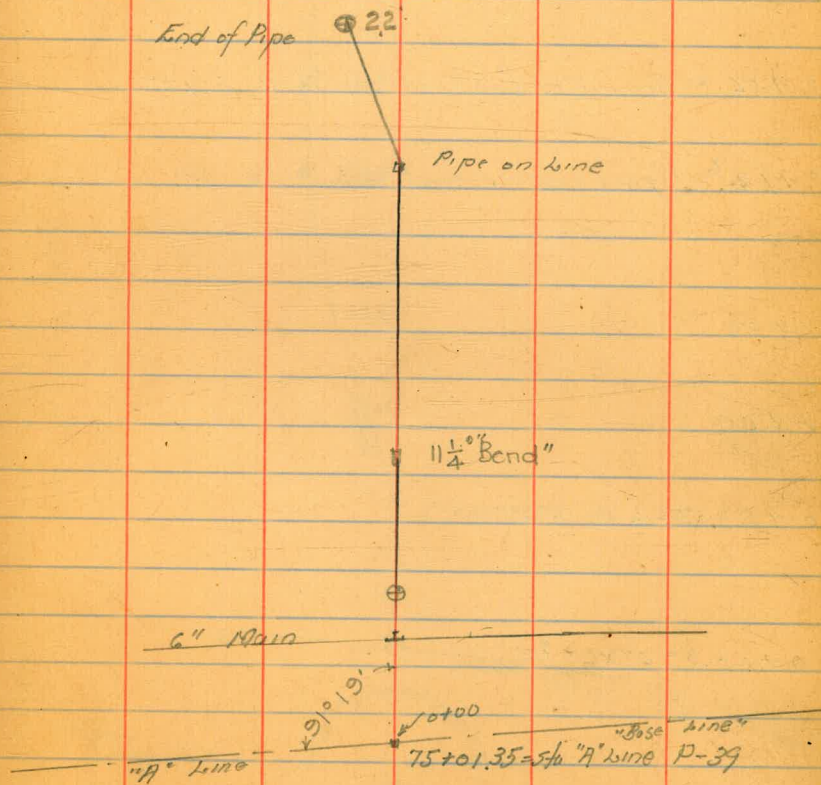 22
End of Pipe
Pipe on Line
11 1/4° "Bend"
6" Main
91° 19'
0+00
"Base Line"
75+01.35 = Sta "A" Line P-39
"A" Line